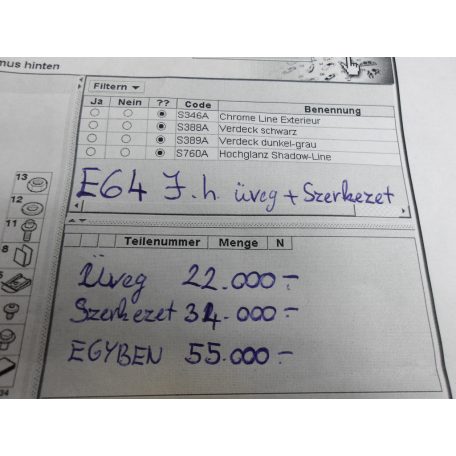 mus hinten
Filtern
Ja Nein ?? Code Benennung
S346A Chrome Line Exterieur
S388A Verdeck schwarz
S389A Verdeck dunkel-grau
S760A Hochglanz Shadow-Line
E64 J.h. üveg + Szerkezet
Teilenummer Menge N
Üveg 22.000.-
Szerkezet 34.000.-
EGYBEN 55.000.-
13
12
11
8